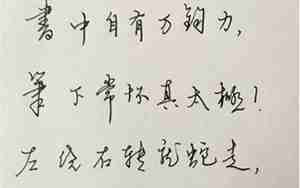 書中自有万钧力，
筆下常怀真太極！
左绕右转龍蛇走，